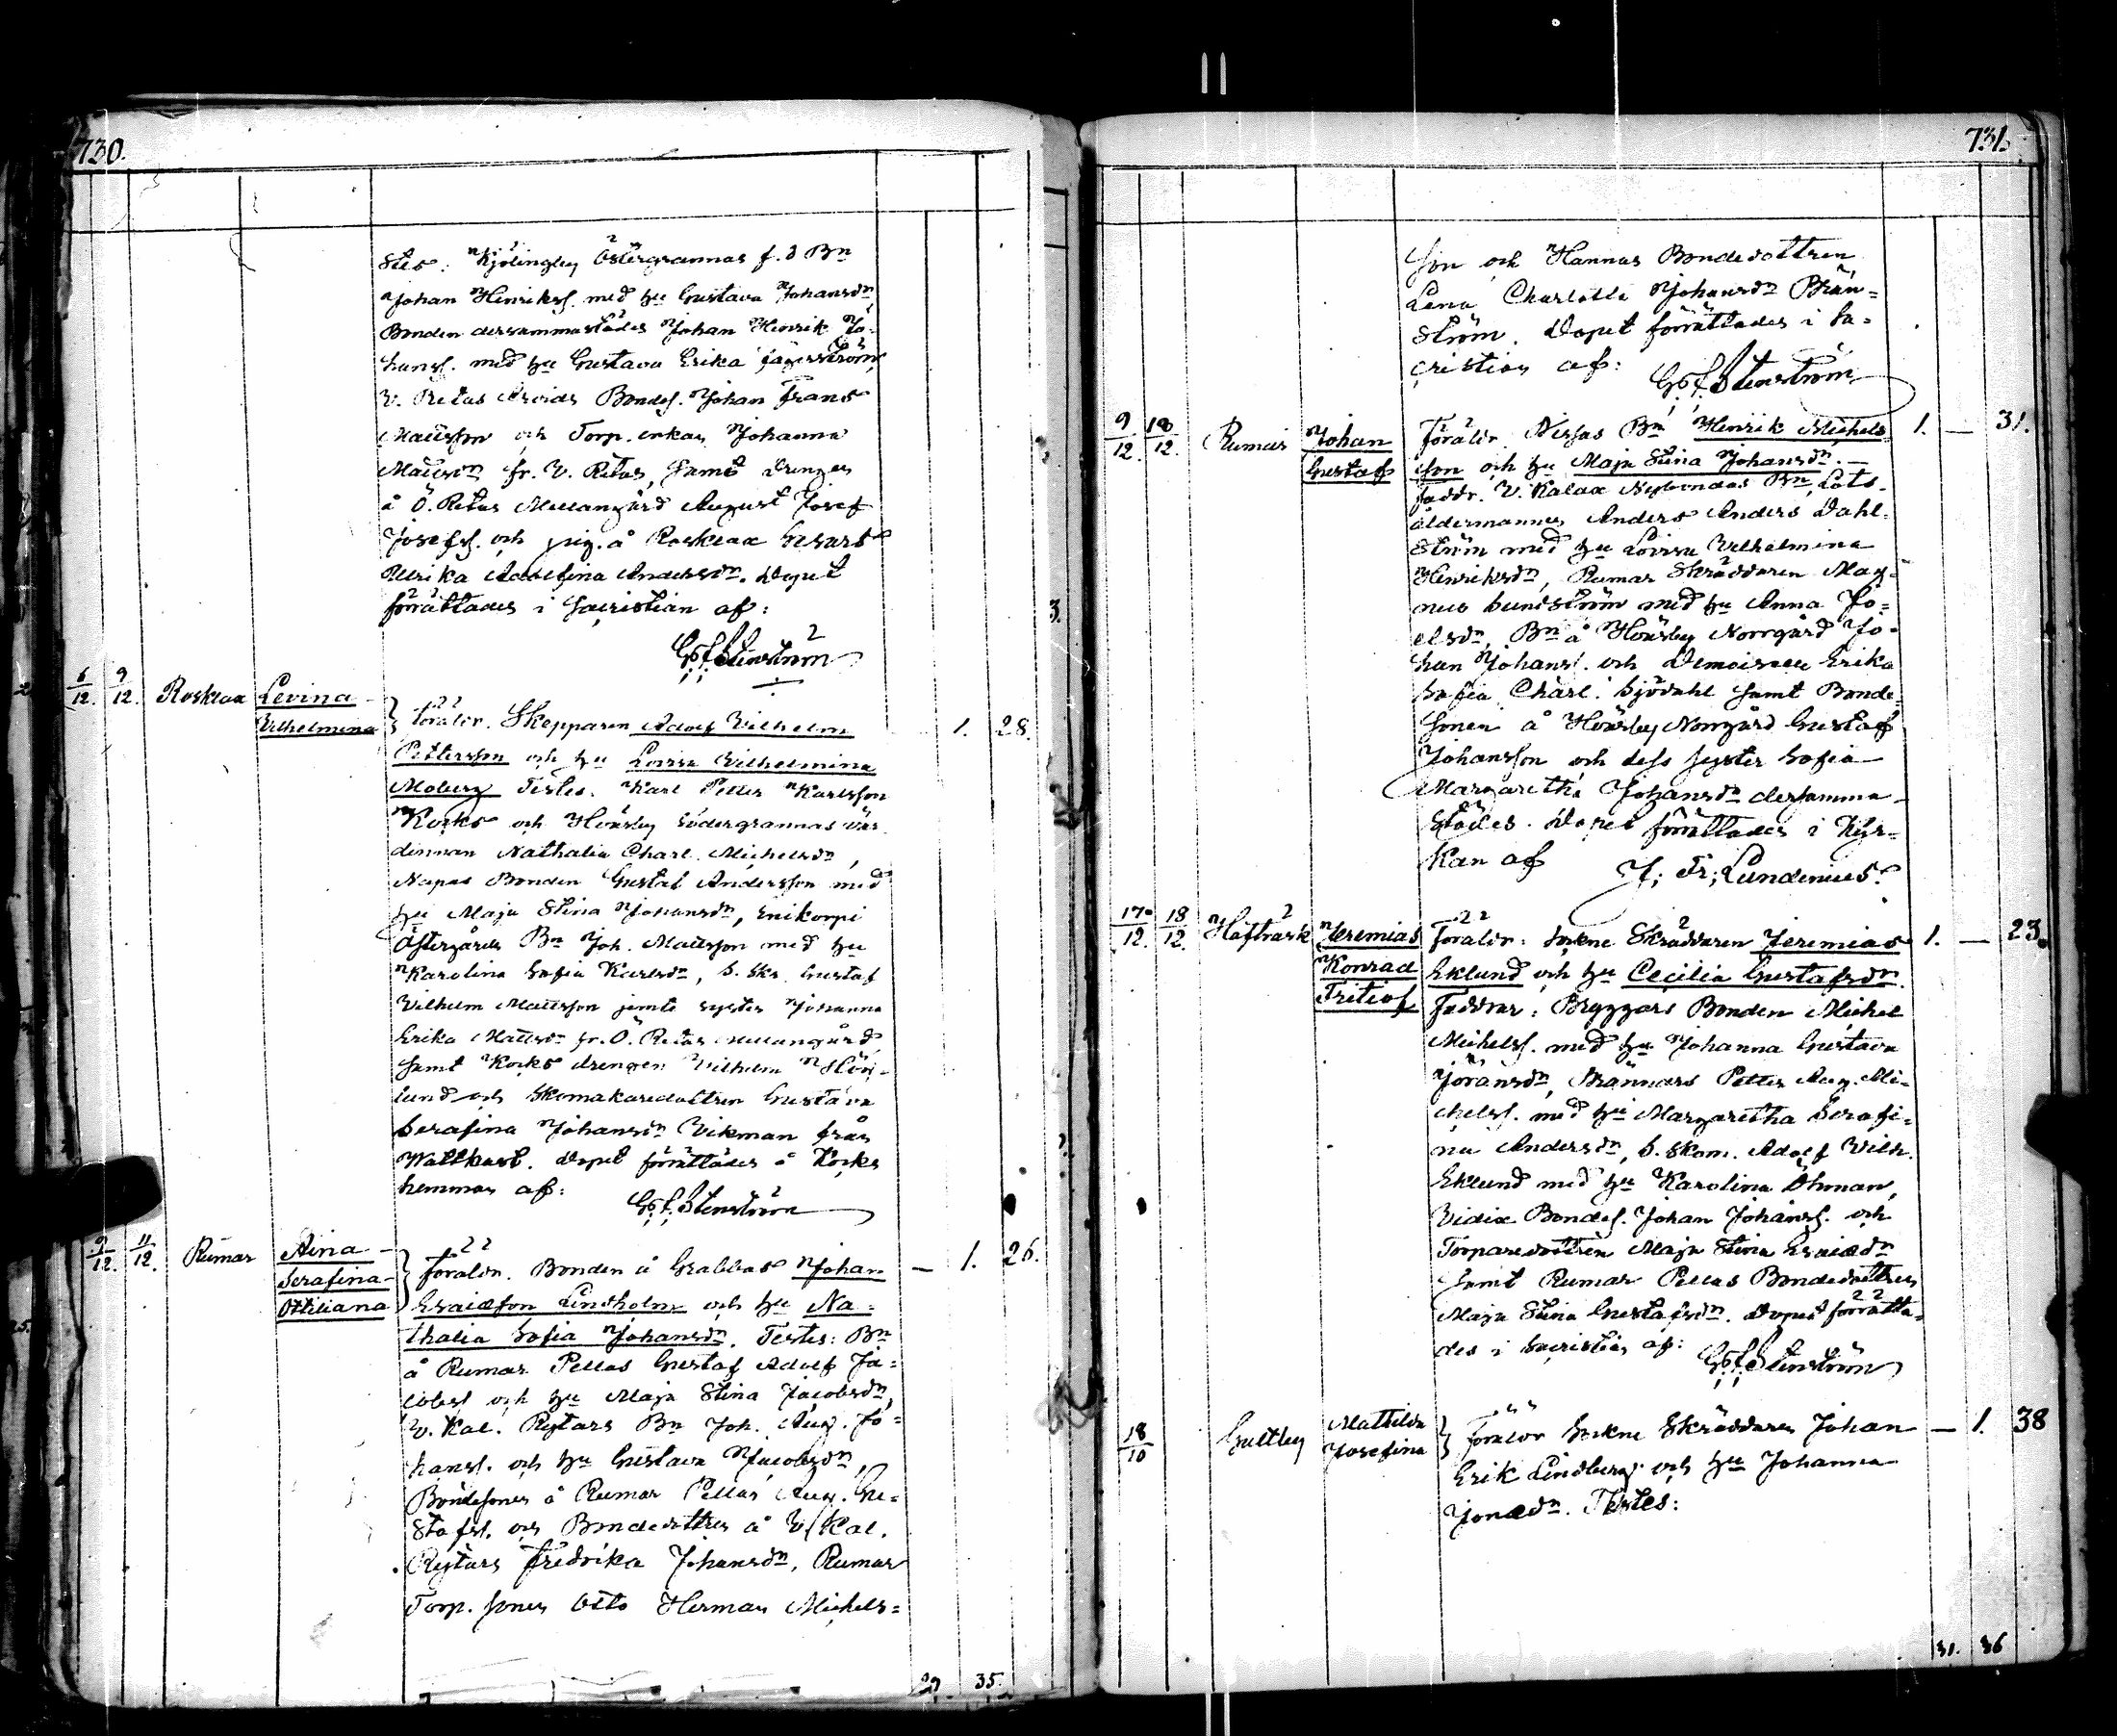 730.
Stes: Kjölingby Östergrannas f. d Bn
Johan Henriksf. med hu Gustava Johansdn,
Bonden dersammastädes Johan Henrik Jo-
hansf. med hu Gustava Erika Jägerström,
V. Retas Bondes. Johan Frans
Mattsson och Torp. enkan Johanna
Mattsdn fr. V. Retas, samt drengen
å Ö. Retas Mellangård August Josef
Josefss. och pig. å Rosklax
Ulrika Adolfina Andersdn. Dopet
förrättades i Sacristian af:
G. F. Stenström
6/12. 9/12. Rosklax Levina Vilhelmina
Föräldr. Skepparen Adolf Vilhelm 1. 28.
Pettersson och hu Lovisa Vilhelmina
Moberg Testes. Karl Petter Karlsson
Korks och Hönsby Södergrannas vär
dinnan Nathalia Charl. Michelsdn,
Napas Bonden Gustaf Andersson med
hu Maja Stina Johansdn, Enikorpi
Östergårds Bn Joh. Mattsson med hu
Karolina Sofia Karlsdn, S. Skr. Gustaf
Vilhelm Mattsson jemte syster Johanna
Erika Mattsdn fr. Ö. Retas Mellangård
samt Korks drengen Vilhelm
lund och Skomakaredottren Gustava
Serafina Johansdn Vikman från
Wattkast. Dopet förrättades å Korks
hemman af:
G. F. Stenström
9/12. 11/12. Rumar Aina Serafina Ottiliana
Föräldr. Bonden å Grabbas Johan — 1. 26.
Esaiæson Lindholm och hu Na-
thalia Sofia Johansdn. Testes: Bn
å Rumar Pellas Gustaf Adolf Ja-
cobsf och hu Maja Stina Jacobsdn,
V. Kal. Rytars Bn Joh. Aug. Jo-
hansf. och hu Gustava Jacobsdn,
Bondesonen å Rumar Pellas Aug. Gu-
stafsf. och Bondedottren å V. Kal.
Rytars Fredrika Johansdn, Rumar
Torp. sonen Otto Herman Michels=
29. 35.
731.
son och Hannas Bondedottren
Lena Charlotta Johansdn Brän-
ström. Dopet förrättades i Sa-
cristian af:
G. F. Stenström
9/12. 10/12. Rumar Johan Gustaf
Föräldr. Nissas Bn Henrik Michels 1. — 31.
son och hu Maja Stina Johansdn. —
Faddr. V. Kalax Nybondas Bn, Lots-
åldermannen Anders Anders Dahl-
ström med hu Lovisa Vilhelmina
Henriksdn, Rumar Skräddaren Mag-
nus Sundström med hu Anna Jo-
elsdn, Bn å Hönsby Norrgård Jo-
han Johansf. och Demoiselle Erika
Sofia Charl. Sjödahl samt Bonde
sonen å Hönsby Norrgård Gustaf
Johansson och dess syster Sofia
Margaretha Johansdn dersamma-
städes. Dopet förrättades i Kyr-
kan af
J. Fr. Lundenius.
17/12. 18/12. Häfträsk Jeremias Konrad Fritiof
Föräldr: Sockne Skräddaren Jeremias 1. — 23.
Eklund och hu Cecilia Gustafsdn.
Faddrar: Bryggars Bonden Michel
Michelsf. med hu Johanna Gustava
Jöransdn, Brännars Petter Aug. Mi-
chelsf. med hu Margaretha Serafi-
na Andersdn, S. Skom. Adolf Vilh.
Eklund med hu Karolina Öhman,
Vidix Bondes. Johan Johansf. och
Torparedottren Maja Stina Esaiædn
samt Rumar Pellas Bondedottren
Maja Stina Gustafsdn. Dopet förrätta-
des i Sacristian af:
G. F. Stenström
18/10 Gultby Mathilda Josefina
Föräldr Sockne Skräddaren Johan — 1. 38
Erik Lindberg och hu Johanna
Jonædn. Testes:
31. 36